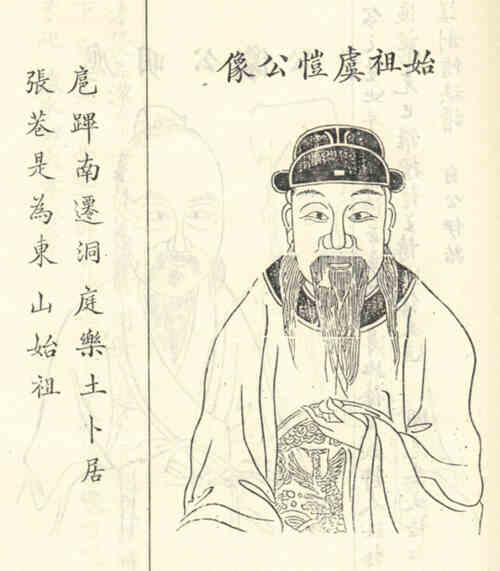 始祖虞愷公像
扈蹕南遷洞庭樂土卜居
張巷是為東山始祖